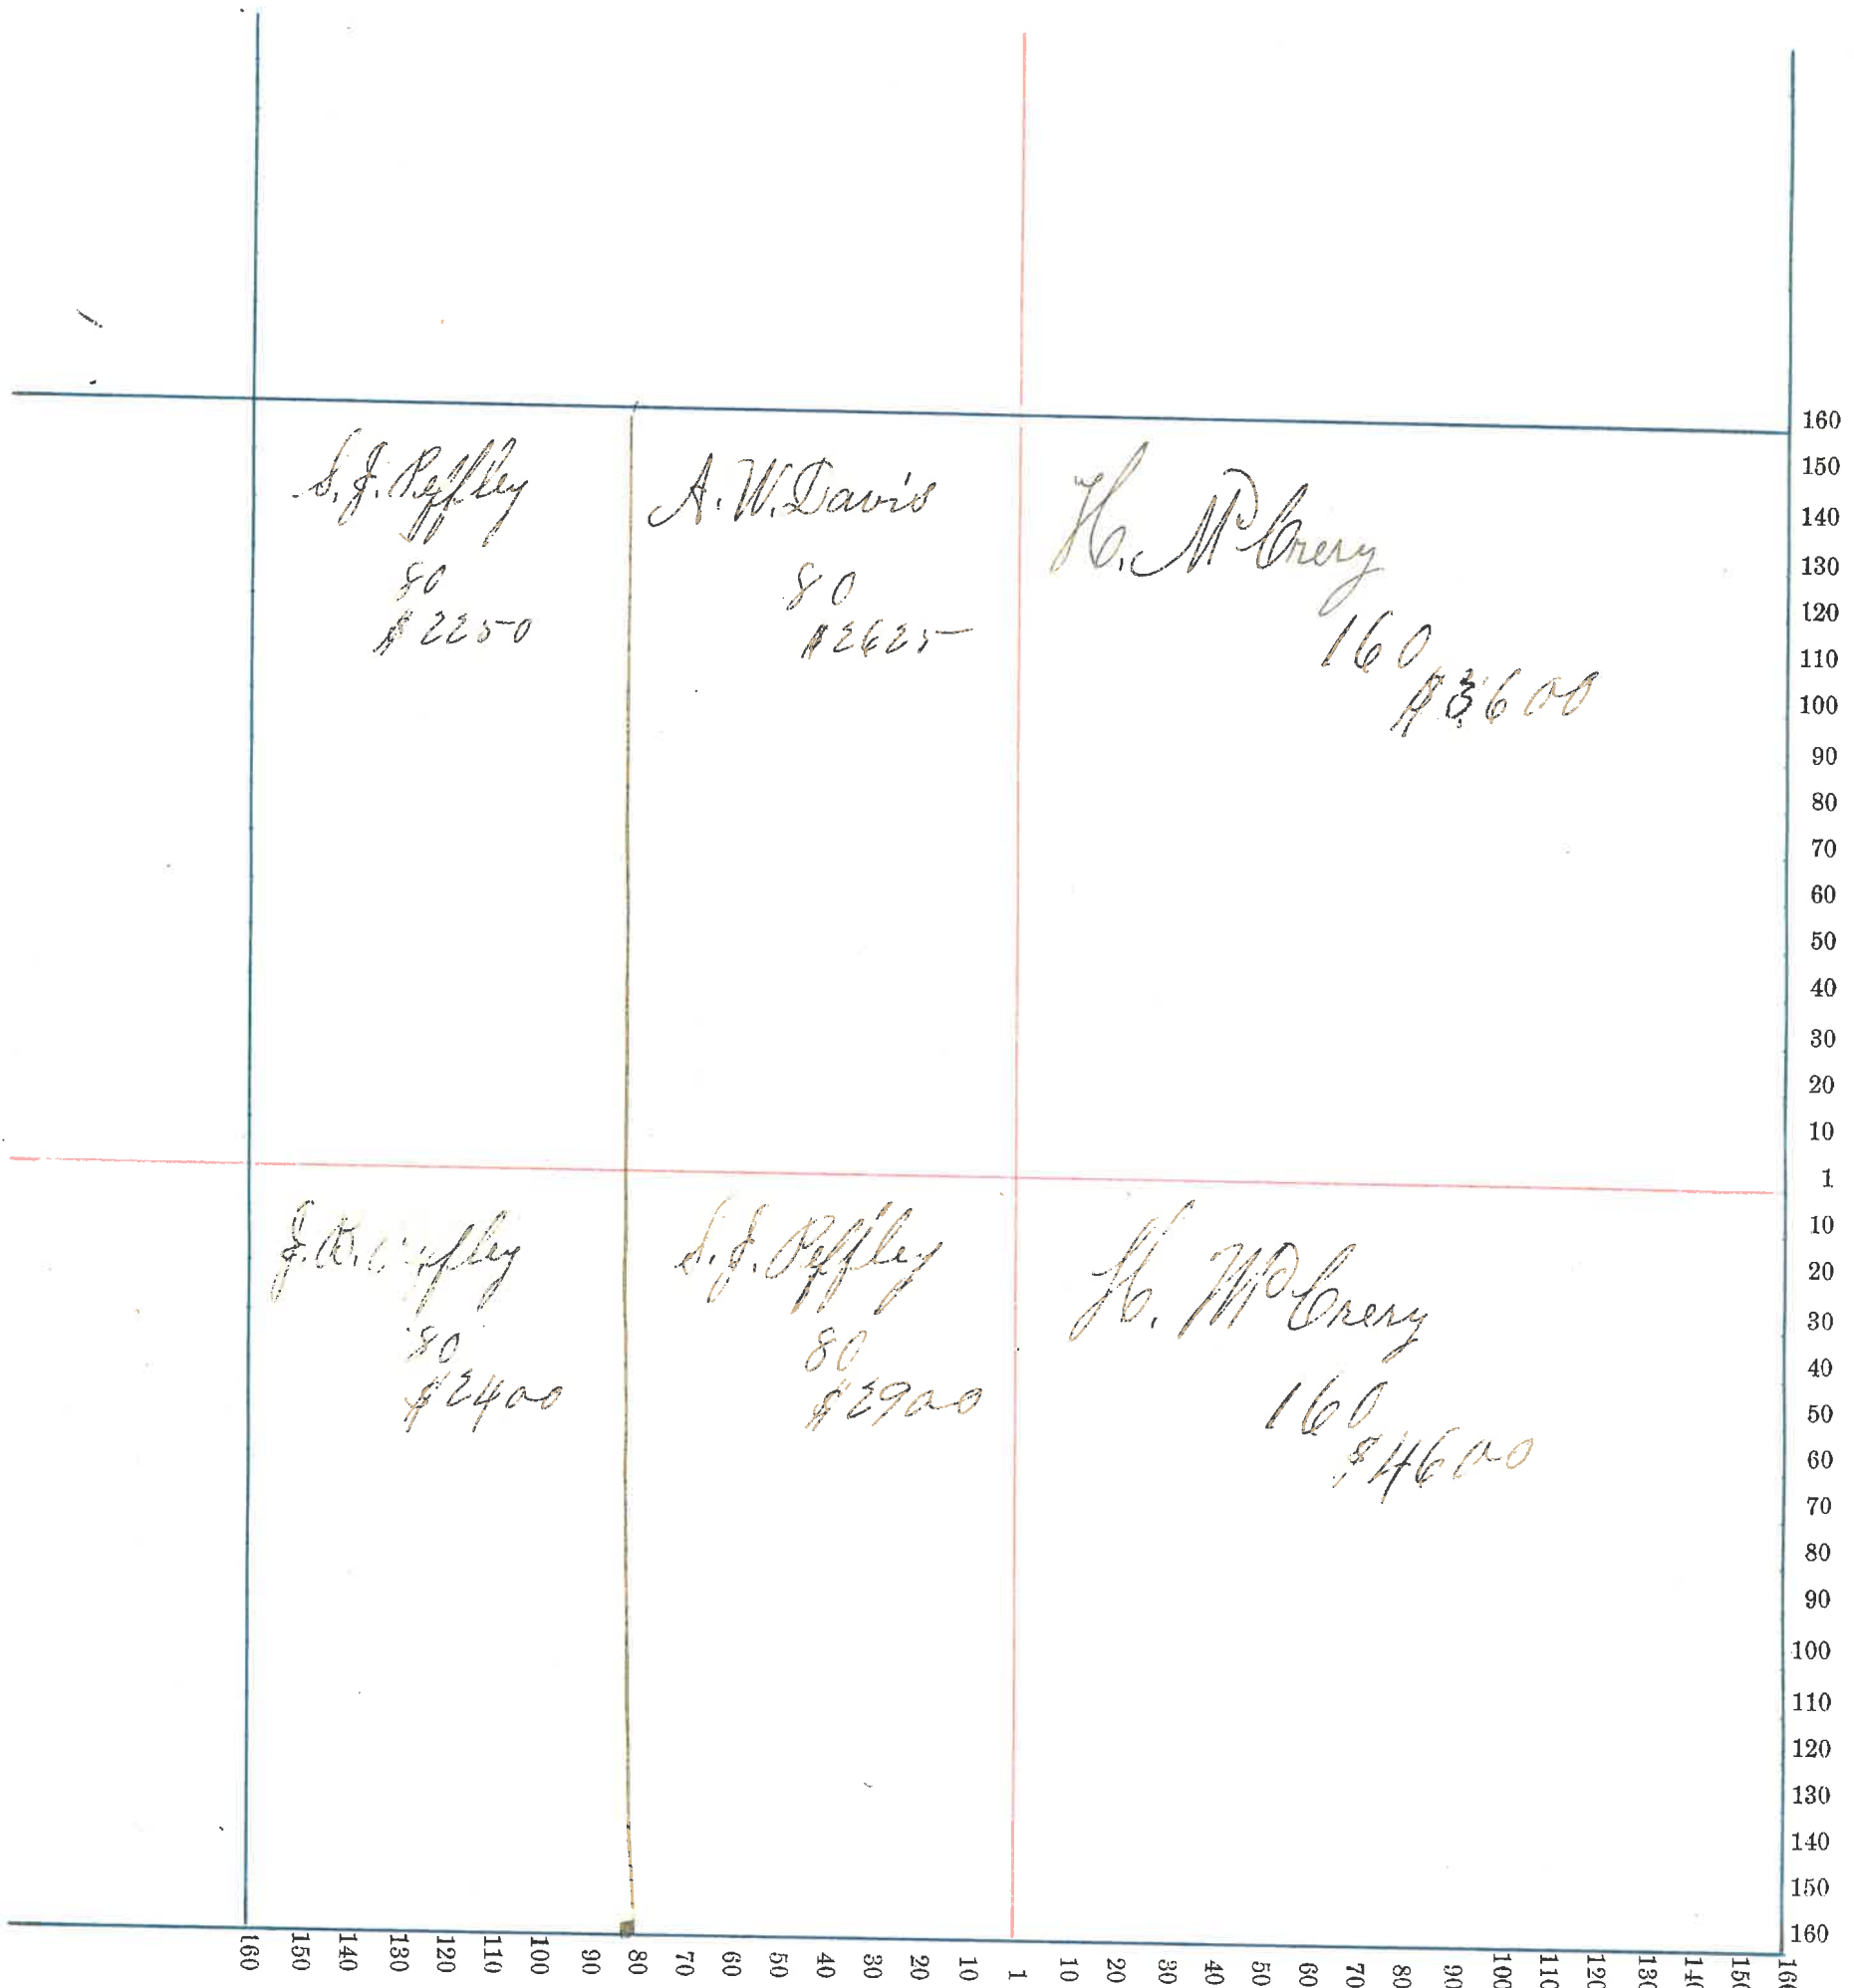 S. J. Peffley
80
$2250
A. W. Davis
80
$2625
H. McCrery
160
$3600
J. Peffley
80
$2400
S. J. Peffley
80
$2900
H. McCrery
160
$4600
160
150
140
130
120
110
100
90
80
70
60
50
40
30
20
10
1
10
20
30
40
50
60
70
80
90
100
110
120
130
140
150
160
160 150 140 130 120 110 100 90 80 70 60 50 40 30 20 10 1 10 20 30 40 50 60 70 80 90 100 110 120 130 140 150 160